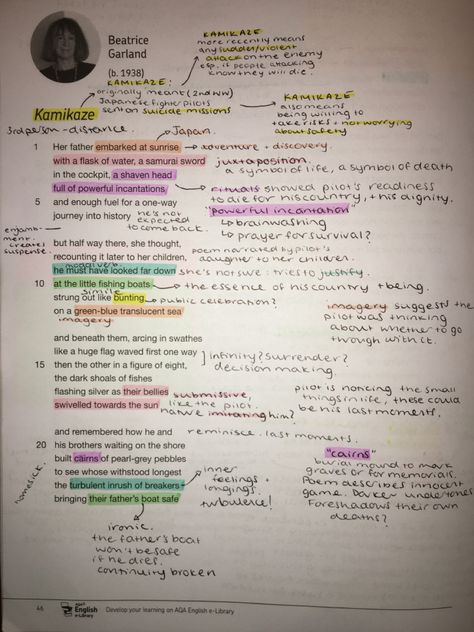 Beatrice
Garland
(b. 1938)
KAMIKAZE
more recently means
any sudden/violent
attack on the enemy
esp. if people attacking
know they will die.
KAMIKAZE:
originally meant (2nd WW)
Japanese fighter pilots
sent on suicide missions
KAMIKAZE
also means
being willing to
take risks + not worrying
about safety
Kamikaze
3rd person - distance.
Japan.
1 Her father embarked at sunrise
adventure + discovery.
with a flask of water, a samurai sword
juxtaposition.
a symbol of life, a symbol of death
in the cockpit, a shaven head
full of powerful incantations
rituals showed pilot's readiness
to die for his country, + his dignity.
5 and enough fuel for a one-way
"powerful incantation"
journey into history
he's not
expected
to come back.
brainwashing
prayer for survival?
enjamb-
ment.
creates
suspense.
but half way there, she thought,
poem narrated by pilot's
recounting it later to her children,
daughter to her children.
he must have looked far down
she's not sure: tries to justify.
10 at the little fishing boats
the essence of his country + being.
simile
strung out like bunting
public celebration?
on a green-blue translucent sea
imagery
imagery suggests the
pilot was thinking
about whether to go
through with it.
and beneath them, arcing in swathes
like a huge flag waved first one way
infinity? surrender?
15 then the other in a figure of eight,
decision making.
the dark shoals of fishes
flashing silver as their bellies
submissive,
swivelled towards the sun
like the pilot.
nature imitating him?
pilot is noticing the small
things in life, these could
be his last moments.
and remembered how he and
reminisce. last moments.
20 his brothers waiting on the shore
built cairns of pearl-grey pebbles
to see whose withstood longest
the turbulent inrush of breakers
inner
feelings +
longings.
turbulence!
bringing their father's boat safe
homesick.
"cairns"
burial mound to mark
graves or for memorials.
Poem describes innocent
game. Darker undertones
Foreshadows their own
deaths?
ironic.
the father's boat
won't be safe
if he dies.
continuity broken
46
AQA
English
e-Library
Develop your learning on AQA English e-Library